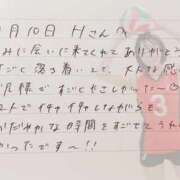 月10日 Hさんへ
みに会いに来てくれてありがとう
すごく落ち着いて、大人な感
な人様ですごくやさしかった〜♡
2人でイチャイチャしながらも
だやかな時間をすごせてうれし
かったです〜!!
3